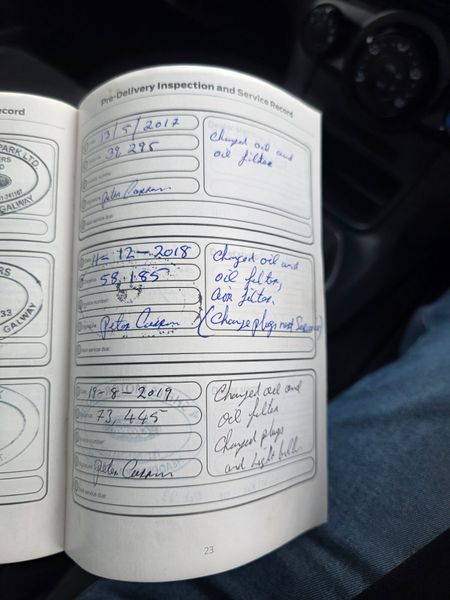 ecord
PARK LTD
ERS
GALWAY
ERS
33
GALWAY
Pre-Delivery Inspection and Service Record
13/5/2017
39295
Peter
Next service due:
Changed oil and
oil filter
12-2018
58185
Peter
Next service due:
Changed oil and
oil filter,
air filter.
(Change plugs next Service)
19-8-2019
73,445
Peter
Next service due:
Changed oil and
oil filter
Changed plugs
and light bulb
23